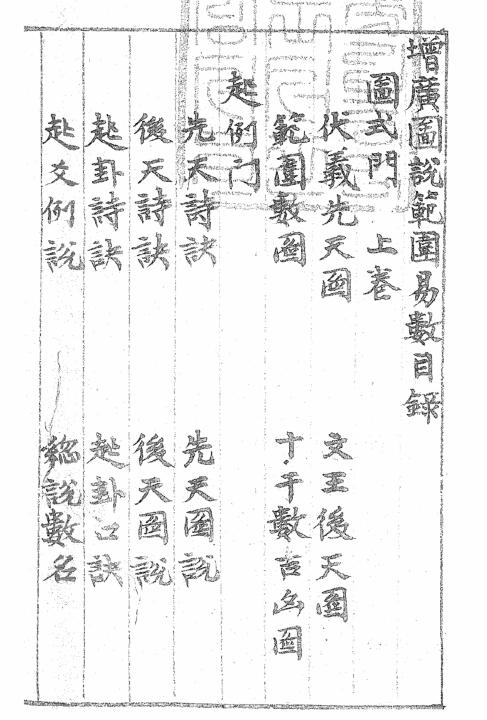 增廣圖說範圍易數目錄
圖式門 上卷
伏羲先天圖 文王後天圖
範圍數圖 十干數吉凶圖
起例门
先天詩訣 先天圖說
後天詩訣 後天圖說
起卦詩訣 起卦口訣
起爻例說 總說數名